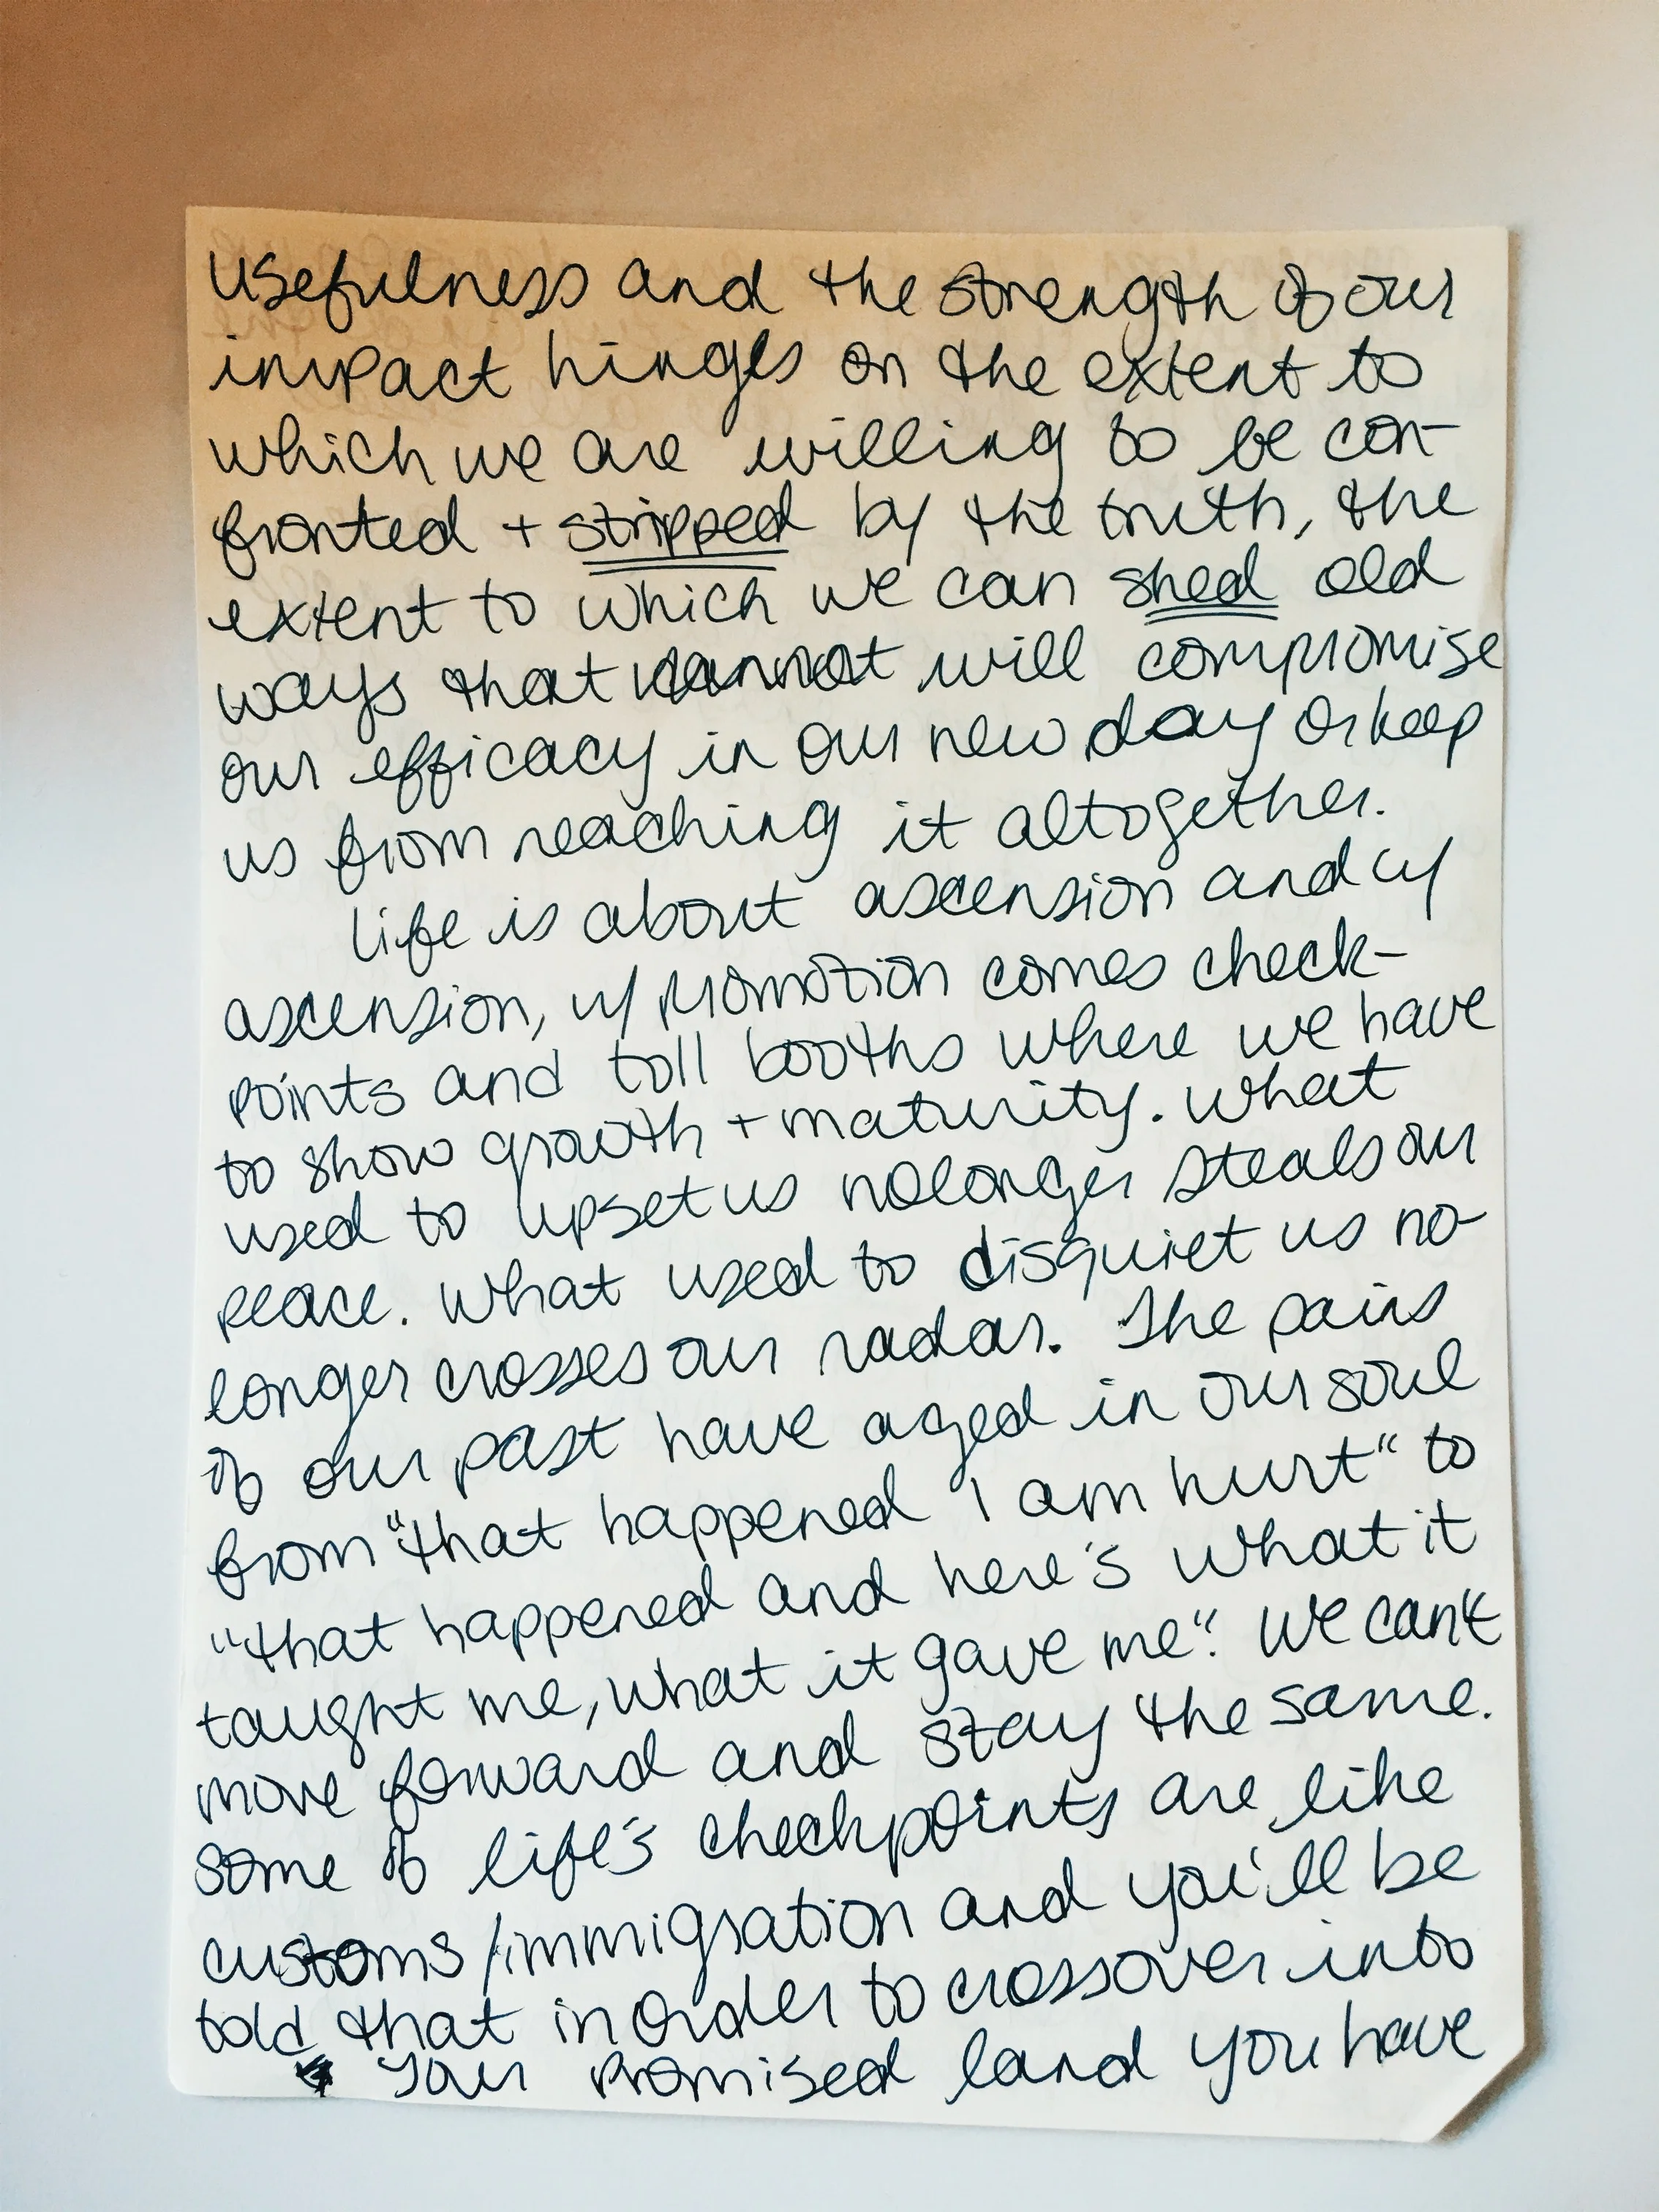 usefulness and the strength of our
impact hinges on the extent to
which we are willing to be con-
fronted + stripped by the truth, the
extent to which we can shed old
ways that cannot will compromise
our efficacy in our new day or keep
us from reaching it altogether.
Life is about ascension and w/
ascension, w/ promotion comes check-
points and toll booths where we have
to show growth + maturity. What
used to upset us no longer steals our
peace. What used to disquiet us no-
longer crosses our radar. The pains
of our past have aged in our soul
from "that happened I am hurt" to
"that happened and here's what it
taught me, what it gave me". We can't
move forward and stay the same.
Some of life's checkpoints are like
customs/immigration and you'll be
told that in order to crossover into
your Promised land you have